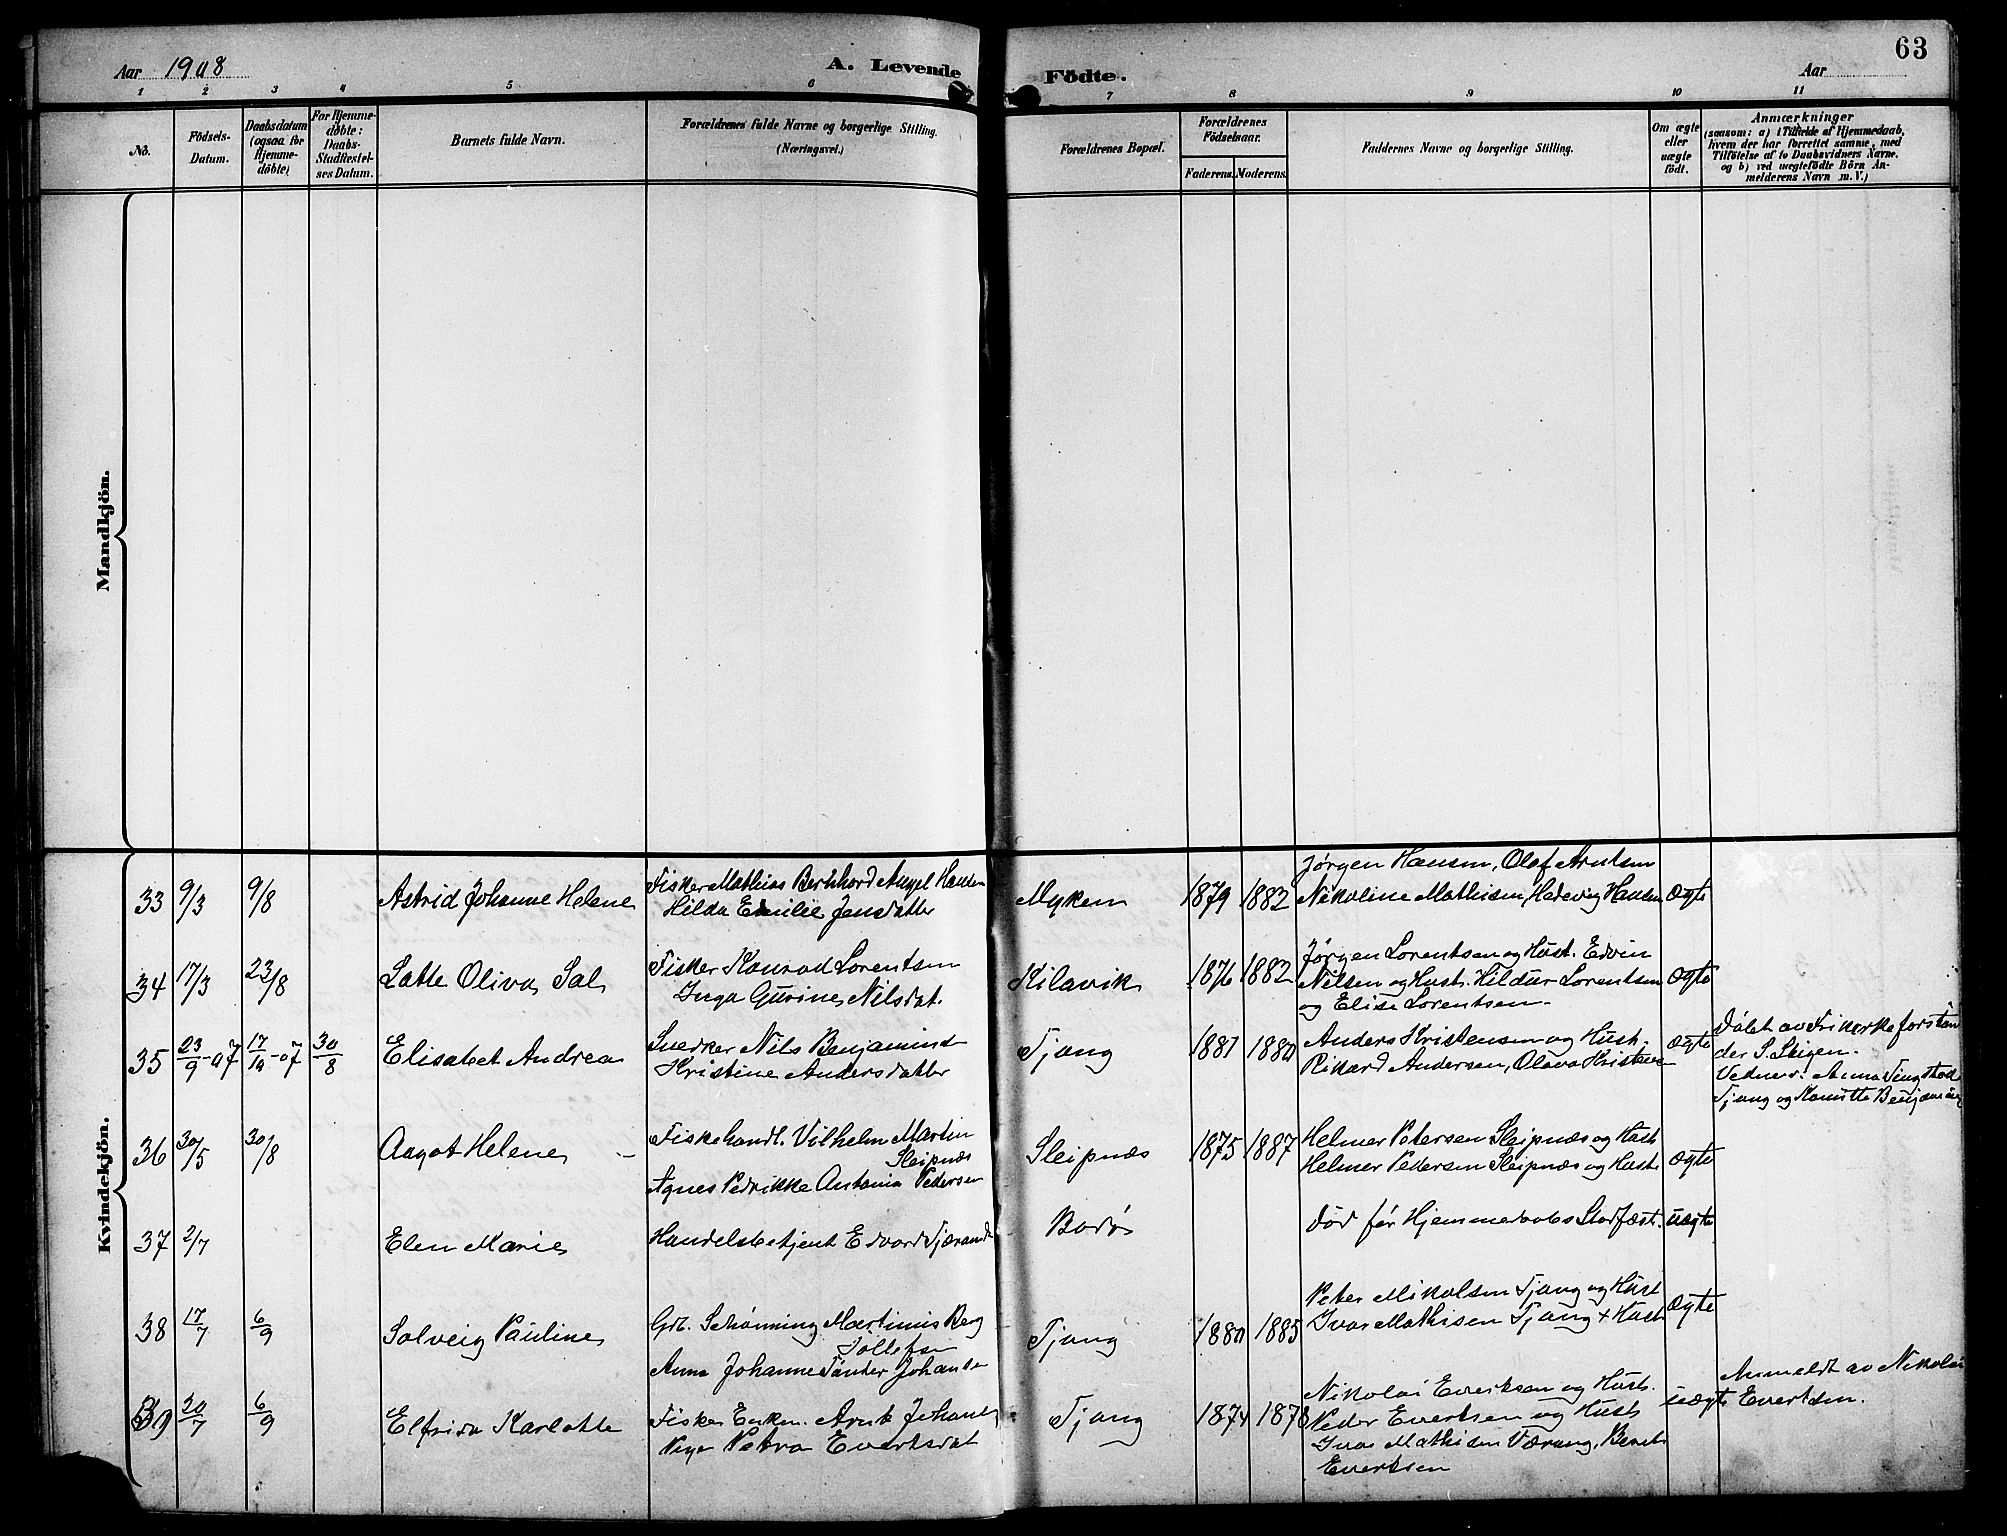 Aar 1908
A. Levende
Födte.
Aar
63
1 2 3 4 5 6 7 8 9 10 11
No.
Födsels-Datum.
Daabsdatum (ogsaa for Hjemme-döbte)
For Hjemme-døbte: Daabs-Stadfæstel-ses Datum.
Barnets fulde Navn.
Forældrenes fulde Navne og borgerlige Stilling. (Næringsvei.)
Forældrenes Bopæl.
Forældrenes Födselsaar.
Faderens. Moderens.
Faddernes Navne og borgerlige Stilling.
Om ægte eller uægte födt.
Anmærkninger
(saasom: a) i Tilfælde af Hjemmedaab,
hvem der har forrettet samme, med
Tilföielse af to Daabsvidners Navne.
og b) ved uægtefödte Börn An-
melderens Navn m. V.)
Mandkjön.
Kvindekjön.
33 9/3 9/8 Astrid Johanne Helene
Fisker Mathias Bernhard Angel Hansen
Hilda Emilie Jensdatter
Myken 1879 1882
Jørgen Hansen, Olaf Arntsen
Nikoline Mathisen, Hedevig Hansen
ægte
34 17/3 23/8 Lotte Oliva Sol
Fisker Konrad Lorentsen
Inga Gurine Nilsdat.
Kilavik 1876 1882
Jørgen Lorentsen og Hust. Edvin
Nilsen og Hust. Hildur Lorentsen
og Elise Lorentsen.
ægte
35 23/9-07 17/10-07 30/8 Elisabet Andrea
Snedker Nils Benjamins
Kristine Andersdatter
Tjong 1881 1880
Anders Kristensen og Hust.
Rikard Andersen, Olava Kristens
ægte
Døbt av Frikirkeforstan
der S. Skigen.
Vidner: Anna Tingstad
Tjong og Kanutte Benjamins
36 30/5 30/8 Aagot Helene
Fiskehandl. Vilhelm Martin
Sleipnæs
Agnes Pedrikke Antonia Pedersen
Sleipnæs 1875 1887
Helmer Petersen Sleipnæs og Hust
Helmer Pedersen Sleipnæs og Hust.
ægte
37 2/7 Elen Marie
Handelsbetjent Edvard Tjæran
Bodø
død før Hjemmedaabs Stadfæst.
uægte
38 17/7 6/9 Solveig Pauline
Gdb. Schønning Martinus Berg
Tollefsen
Anna Johanne Tønder Johanse
Tjong 1880 1885
Peter Mikalsen Tjong og Hust
Ivar Mathisen Tjong + Hust
ægte
39 20/7 6/9 Elfrida Karlotte
Fisker Enkem. Arnt Johans
Pige Petra Evertsdat
Tjong 1874 1878
Nikolai Evertsen og Hust.
Peder Evertsen og Hust
Ivar Mathisen Værang, Berit
Evertsen
uægte
Anmeldt av Nikolai
Evertsen.